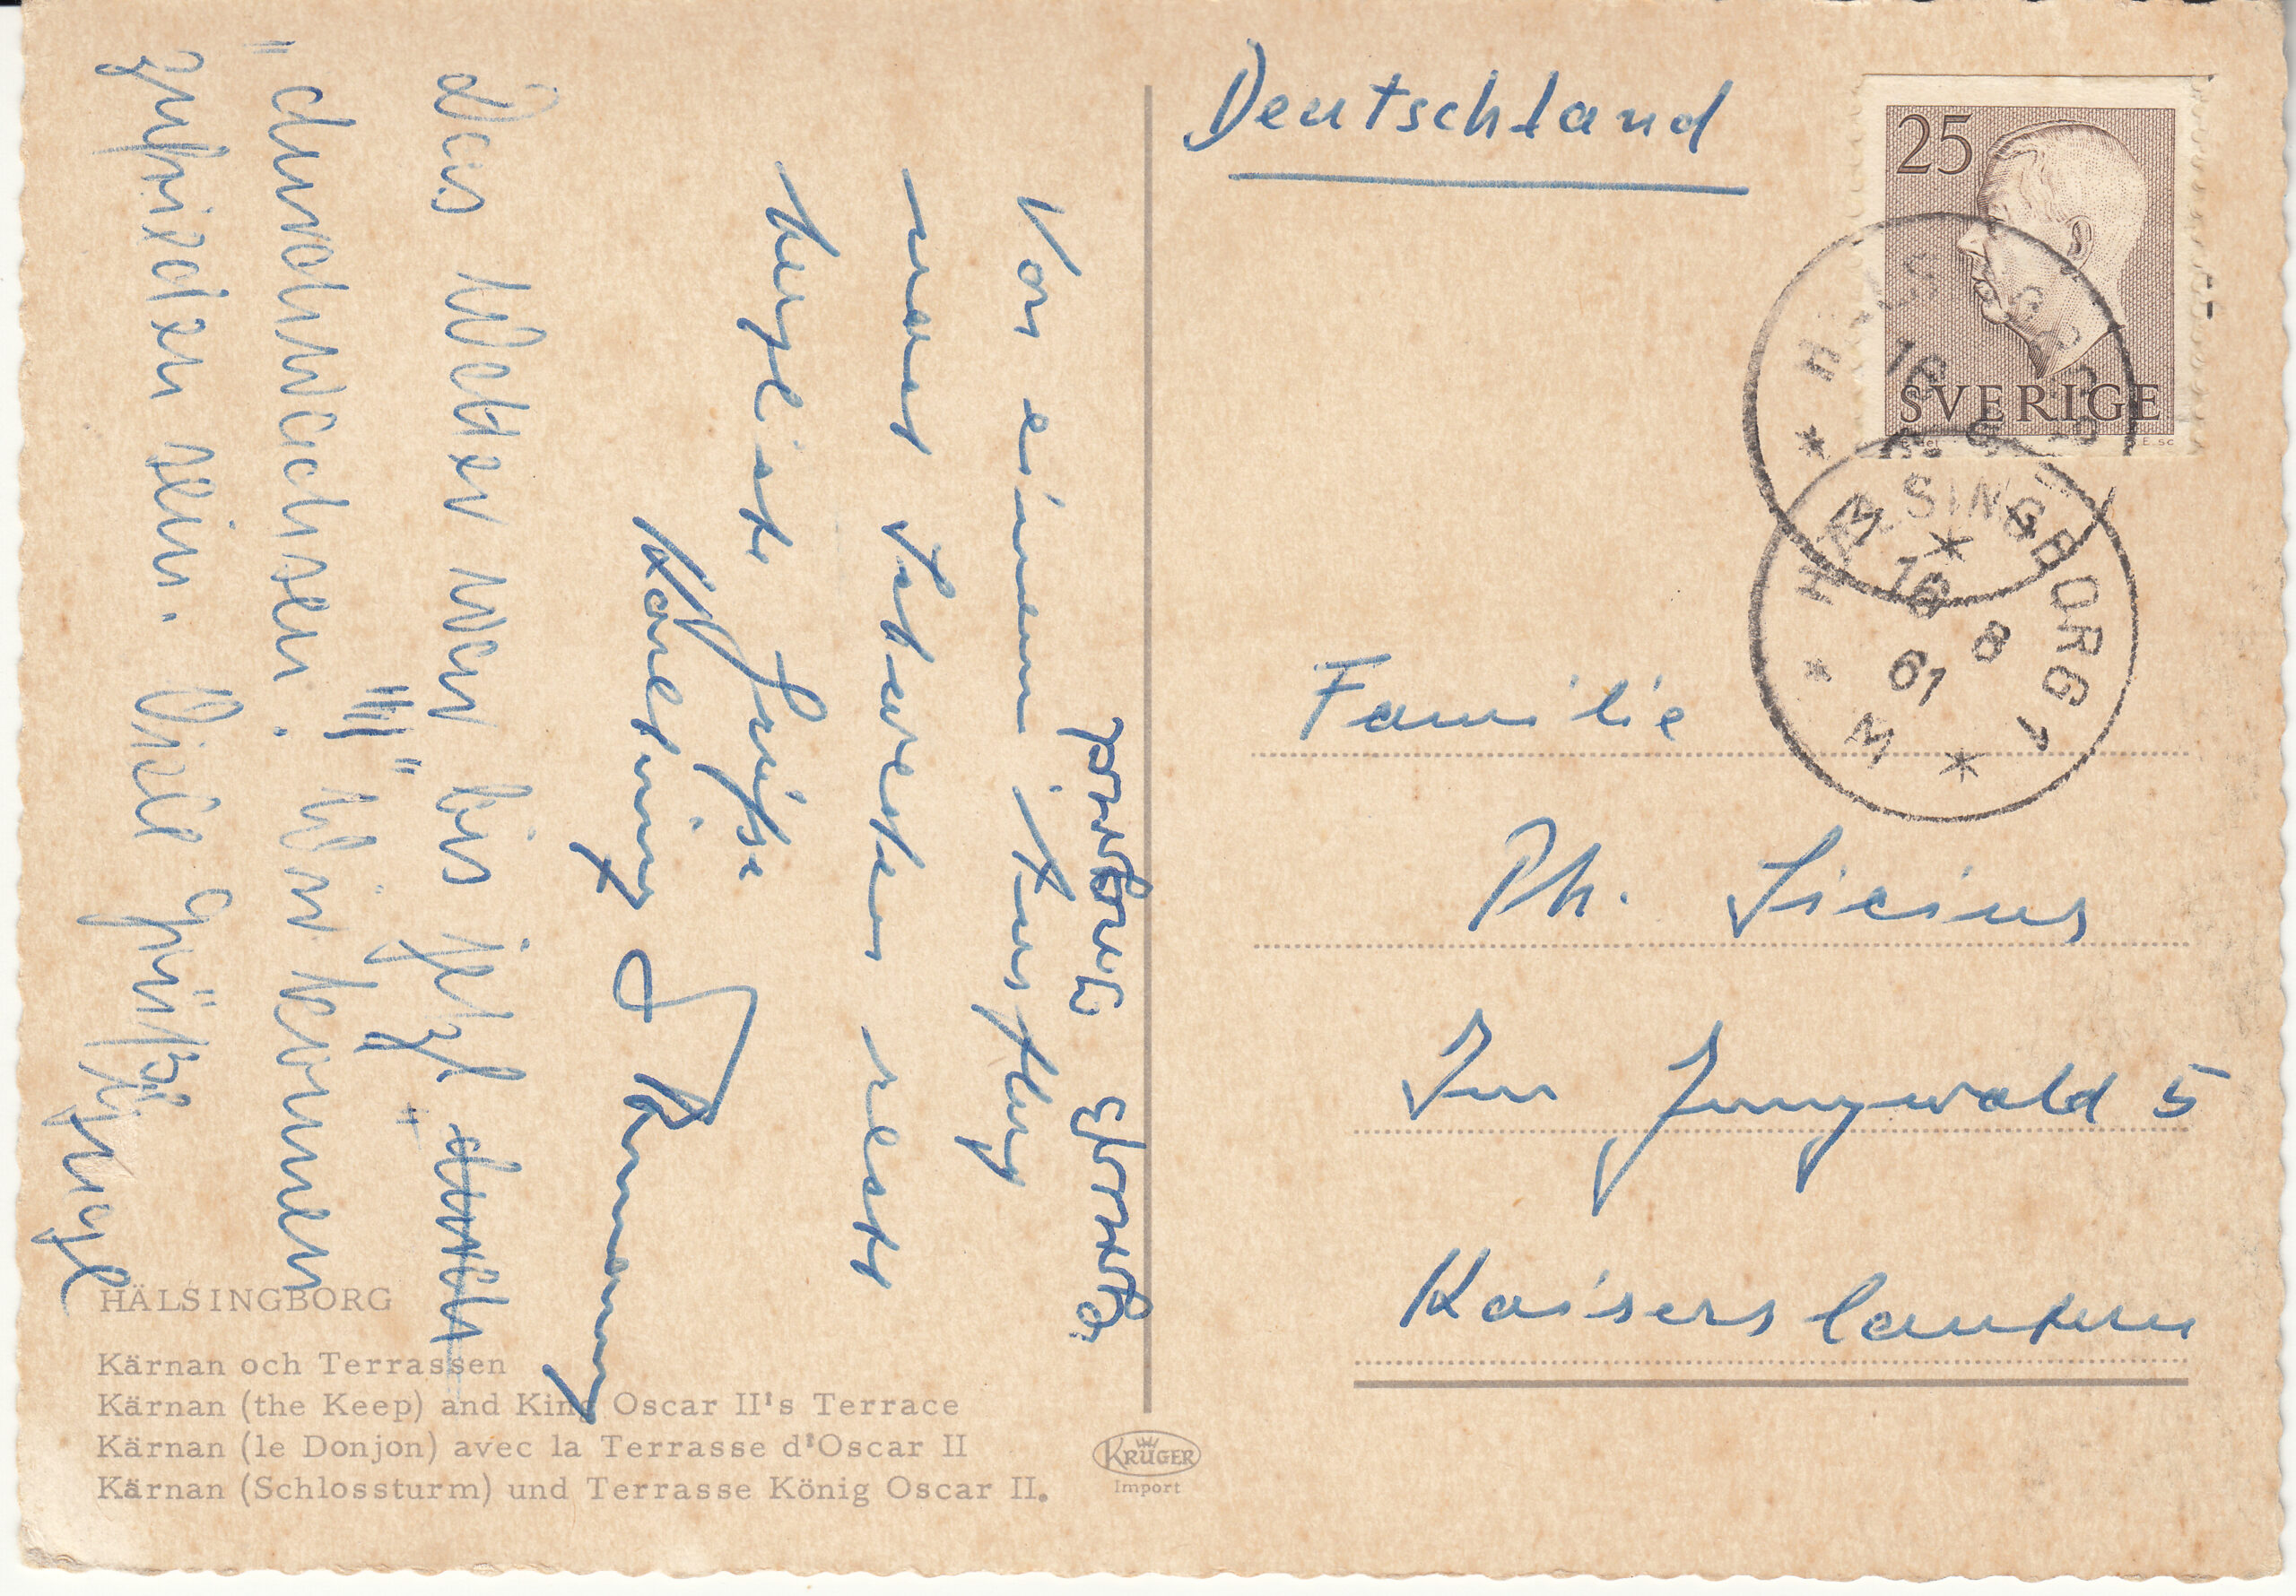 Deutschland
25
SVERIGE
HÄLSINGBORG 1
16 8
61
M
Familie
Ph.
Im Jungwald 5
Kaiserslautern
Von einem Ausflug
nach Schweden
Herzliche Grüße
Das Wetter war bis jetzt
"durchwachsen." Wir können
zufrieden sein. Viele Grüße
HÄLSINGBORG
Kärnan och Terrassen
Kärnan (the Keep) and King Oscar II's Terrace
Kärnan (le Donjon) avec la Terrasse d'Oscar II
Kärnan (Schlossturm) und Terrasse König Oscar II.
KRÜGER
Import